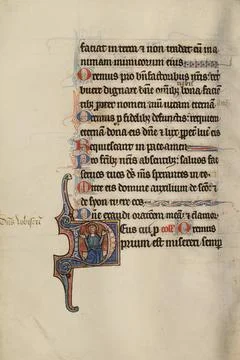 faciat in terra et non tradat eum in ma
nimam inimicorum eius
Oremus pro benefactoribus nostris re
buere dignare dne omibus bona facien
tibus propter nomen tuum vitam eternam
Oremus pro fidelibus defunctis. requiem
eternam dona eis dne et lux perpet luc eis
Requiescant in pace amen
Pro fribus nris absentibus. salvos fac
servos tuos ds ms sperantes in te.
Mitte eis domine auxilium de sco et
de syon tuere eos
Dne exaudi orationem meam et clamor
Deus cui pp coll Oremus
prium est misereri semp